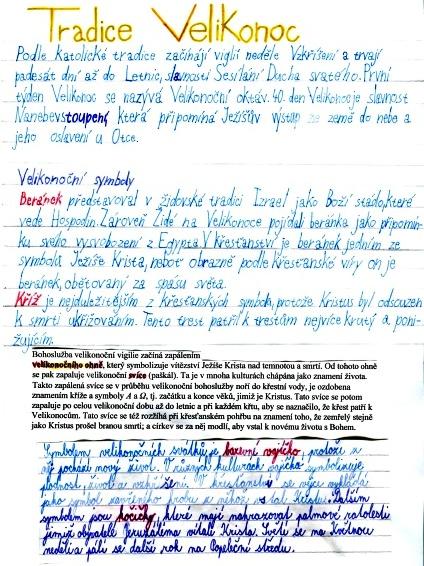 Tradice Velikonoc
Podle katolické tradice začínají vigílí neděle Vzkříšení a trvají
padesát dní až do Letnic, slavnosti Seslání Ducha svatého. První
týden Velikonoc se nazývá Velikonoční oktáv. 40. den Velikonoc je slavnost
Nanebevstoupení, která připomíná Ježíšův výstup ze země do nebe a
jeho oslavení u Otce.
Velikonoční symboly
Beránek představoval v židovské tradici Izrael jako Boží stado, které
vede Hospodin. Zároveň Židé na Velikonoce pojídali beránka jako připomín-
ku svého vysvobození z Egypta. V křesťanství je beránek jedním ze
symbolů Ježíše Krista, neboť obrazně podle křesťanské víry on je
beránek, obětovaný za spásu světa.
Kříž je nejdůležitějším z křesťanských symbolů, protože Kristus byl odsouzen
k smrti ukřižováním. Tento trest patřil k trestům nejvíce krutý a poni-
žujícím.
Bohoslužba velikonoční vigilie začíná zapálením
velikonočního ohně, který symbolizuje vítězství Ježíše Krista nad temnotou a smrtí. Od tohoto ohně
se pak zapaluje velikonoční svíce (paškál). Ta je v mnoha kulturách chápána jako znamení života.
Takto zapálená svíce se v průběhu velikonoční bohoslužby noří do křestní vody, je ozdobena
znamením kříže a symboly A a Ω, tj. začátku a konce věků, jimiž je Kristus. Tato svíce se potom
zapaluje po celou velikonoční dobu až do letnic a při každém křtu, aby se naznačilo, že křest patří k
Velikonocům. Tato svíce se též rozžíhá při křesťanském pohřbu na znamení toho, že zemřelý stejně
jako Kristus prošel branou smrti; a církev se za něj modlí, aby vstal k novému životu s Bohem.
Symbolem velikonočních svátků je barevné vajíčko, protože z
něj pochází nový život. V různých kulturách vajíčko symbolizuje
plodnost, život a vzkříšení. V křesťanství se vejce vykládá
jako symbol zavřeného hrobu, z něhož vstal Kristus. Dalším
symbolem jsou kočičky, které mají nahrazovat palmové ratolesti
jimiž obyvatelé Jeruzaléma vítali Krista. Světí se na Květnou
neděli a pálí se další rok na Popeleční středu.